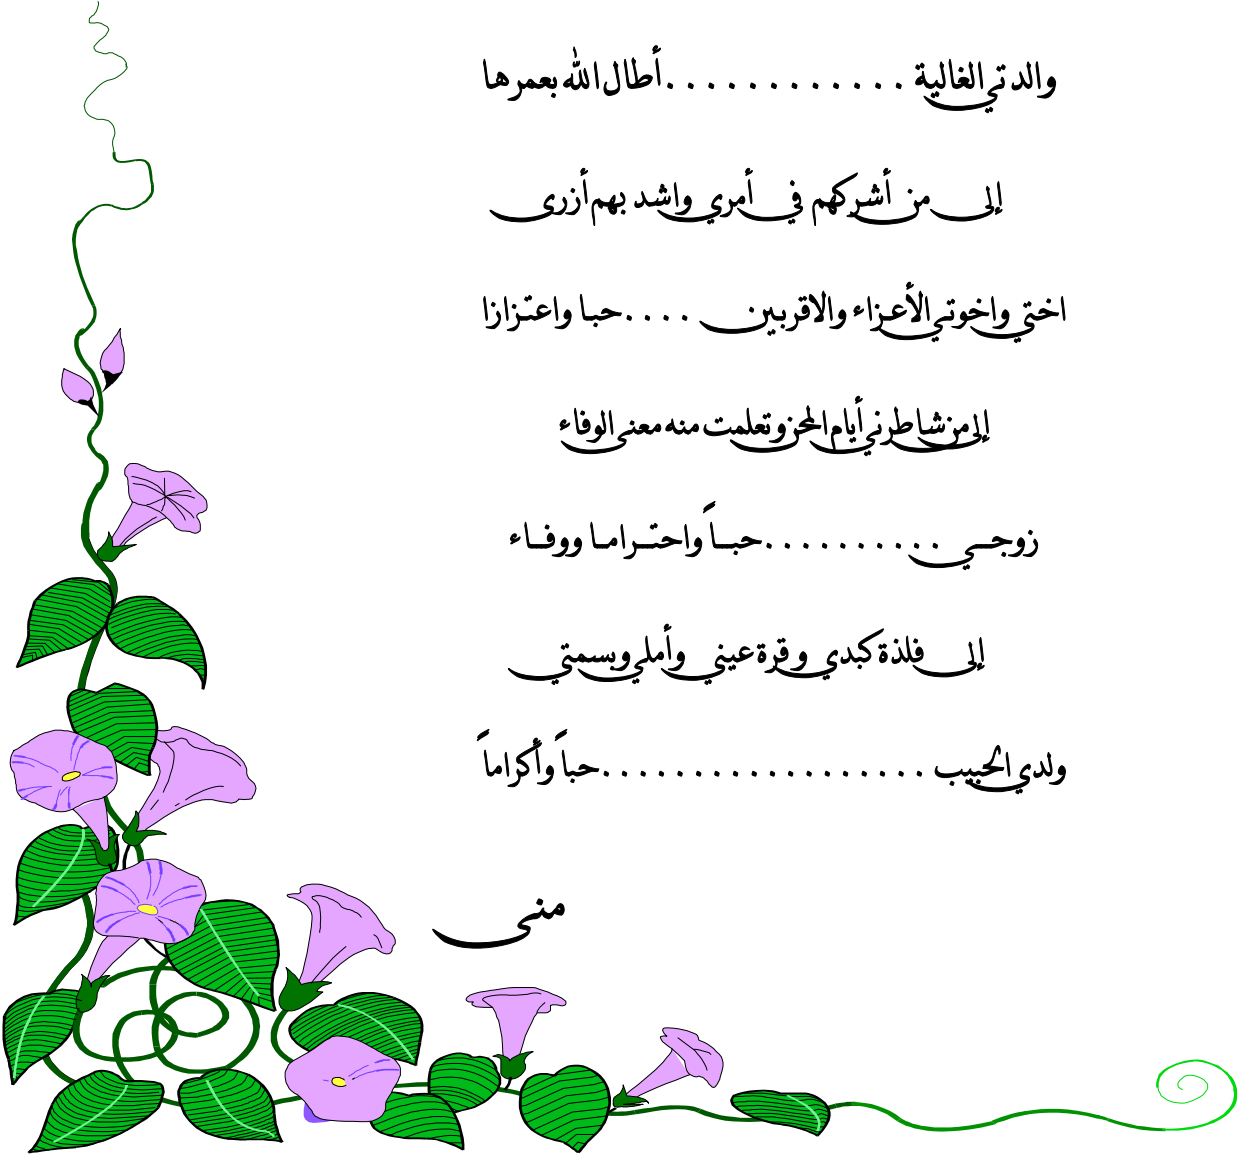 والدتي الغالية ............ أطال الله بعمرها
إلى من أشركهم في أمري واشد بهم أزرى
اختي واخوتي الأعزاء والاقربين ....حبا واعتزازا
إلى من شاطرني أيام المحن وتعلمت منه معنى الوفاء
زوجي ..........حباً واحتراما ووفاء
إلى فلذة كبدي وقرة عيني وأملي وبسمتي
ولدي الحبيب ..................حباً وأكراماً
منى